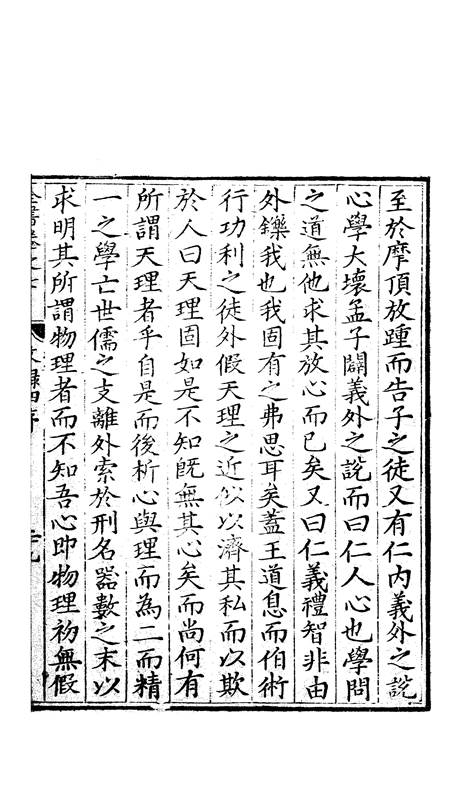 至於摩頂放踵而告子之徒又有仁內義外之說
心學大壞孟子闢義外之說而曰仁人心也學問
之道無他求其放心而已矣又曰仁義禮智非由
外鑠我也我固有之弗思耳矣蓋王道息而伯術
行功利之徒外假天理之近似以濟其私而以欺
於人曰天理固如是不知旣無其心矣而尚何有
所謂天理者乎自是而後析心與理而為二而精
一之學亡世儒之支離外索於刑名器數之末以
求明其所謂物理者而不知吾心即物理初無假
全書卷之七 文錄四序